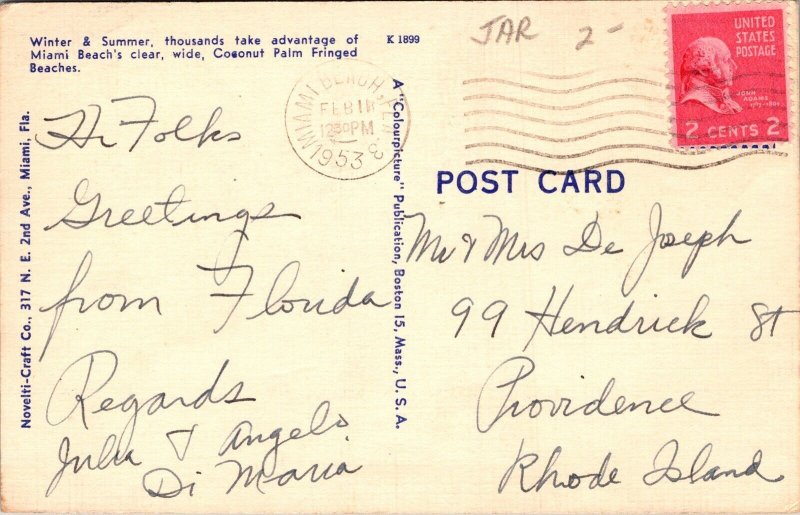 Winter & Summer, thousands take advantage of
Miami Beach's clear, wide, Coconut Palm Fringed
Beaches.
K 1899
JAR 2-
MIAMI BEACH, FLA
FEB 18
12 30 PM
1953
UNITED
STATES
POSTAGE
JOHN
ADAMS
1797-1801
2 CENTS 2
POST CARD
Novelti-Craft Co., 317 N. E. 2nd Ave., Miami, Fla.
A "Colourpicture" Publication, Boston 15, Mass., U. S. A.
Hi Folks
Greetings
from Florida
Regards
Julia & Angelo
Di Maria
Mr & Mrs De Joseph
99 Hendrick St
Providence
Rhode Island